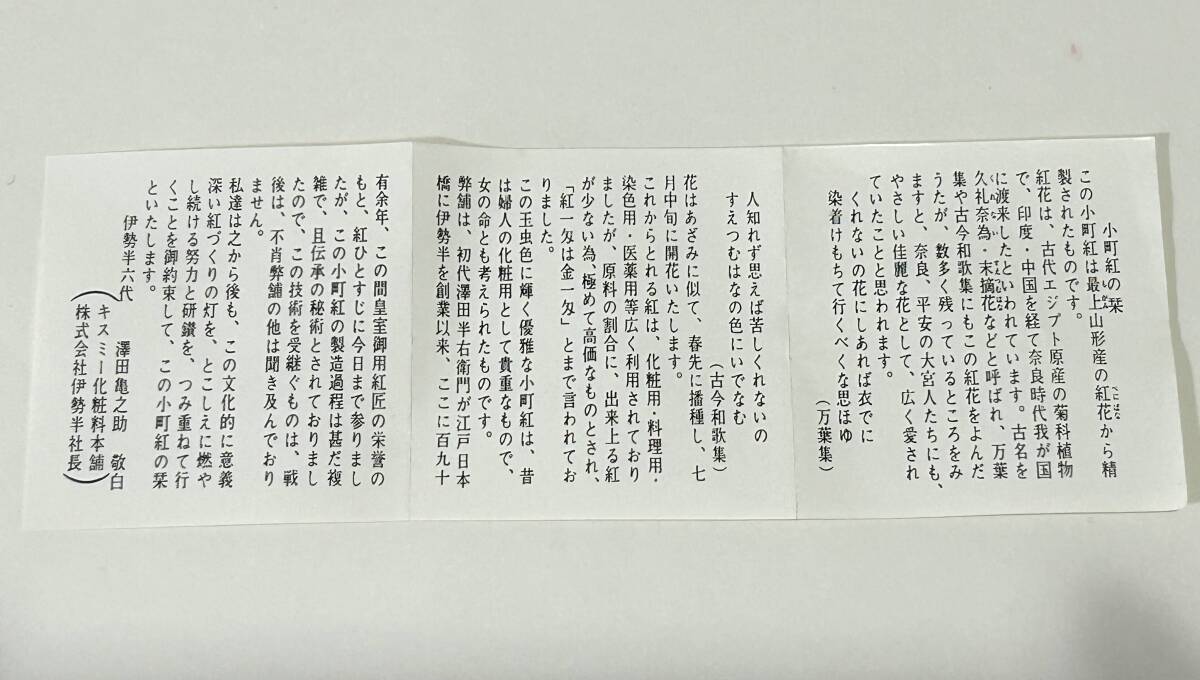 小町紅の栞
この小町紅は最上山形産の紅花から精
製されたものです。
紅花は、古代エジプト原産の菊科植物
で、印度・中国を経て奈良時代我が国
に渡来したといわれています。古名を
久礼奈為・末摘花などと呼ばれ、万葉
集や古今和歌集にもこの紅花をよんだ
うたが、数多く残っているところをみ
ますと、奈良、平安の大宮人たちにも、
やさしい佳麗な花として、広く愛され
ていたことと思われます。
くれないの花にしあれば衣でに
染着けもちて行くべくな思ほゆ
(万葉集)
人知れず思えば苦しくれないの
すえつむはなの色にいでなむ
(古今和歌集)
花はあざみに似て、春先に播種し、七
月中旬に開花いたします。
これからとれる紅は、化粧用・料理用・
染色用・医薬用等広く利用されており
ましたが、原料の割合に、出来上る紅
が少ない為、極めて高価なものとされ、
「紅一匁は金一匁」とまで言われてお
りました。
この玉虫色に輝く優雅な小町紅は、昔
は婦人の化粧用として貴重なもので、
女の命とも考えられたものです。
弊舗は、初代澤田半右衛門が江戸日本
橋に伊勢半を創業以来、ここに百九十
有余年、この間皇室御用紅匠の栄誉の
もと、紅ひとすじに今日まで参りまし
たが、この小町紅の製造過程は甚だ複
雑で、且伝承の秘術とされておりまし
たので、この技術を受継ぐものは、戦
後は、不肖弊舗の他は聞き及んでおり
ません。
私達は之から後も、この文化的に意義
深い紅づくりの灯を、とこしえに燃や
し続ける努力と研鑽を、つみ重ねて行
くことを御約束して、この小町紅の栞
といたします。
伊勢半六代 澤田亀之助 敬白
(キスミー化粧料本舗
株式会社伊勢半社長)